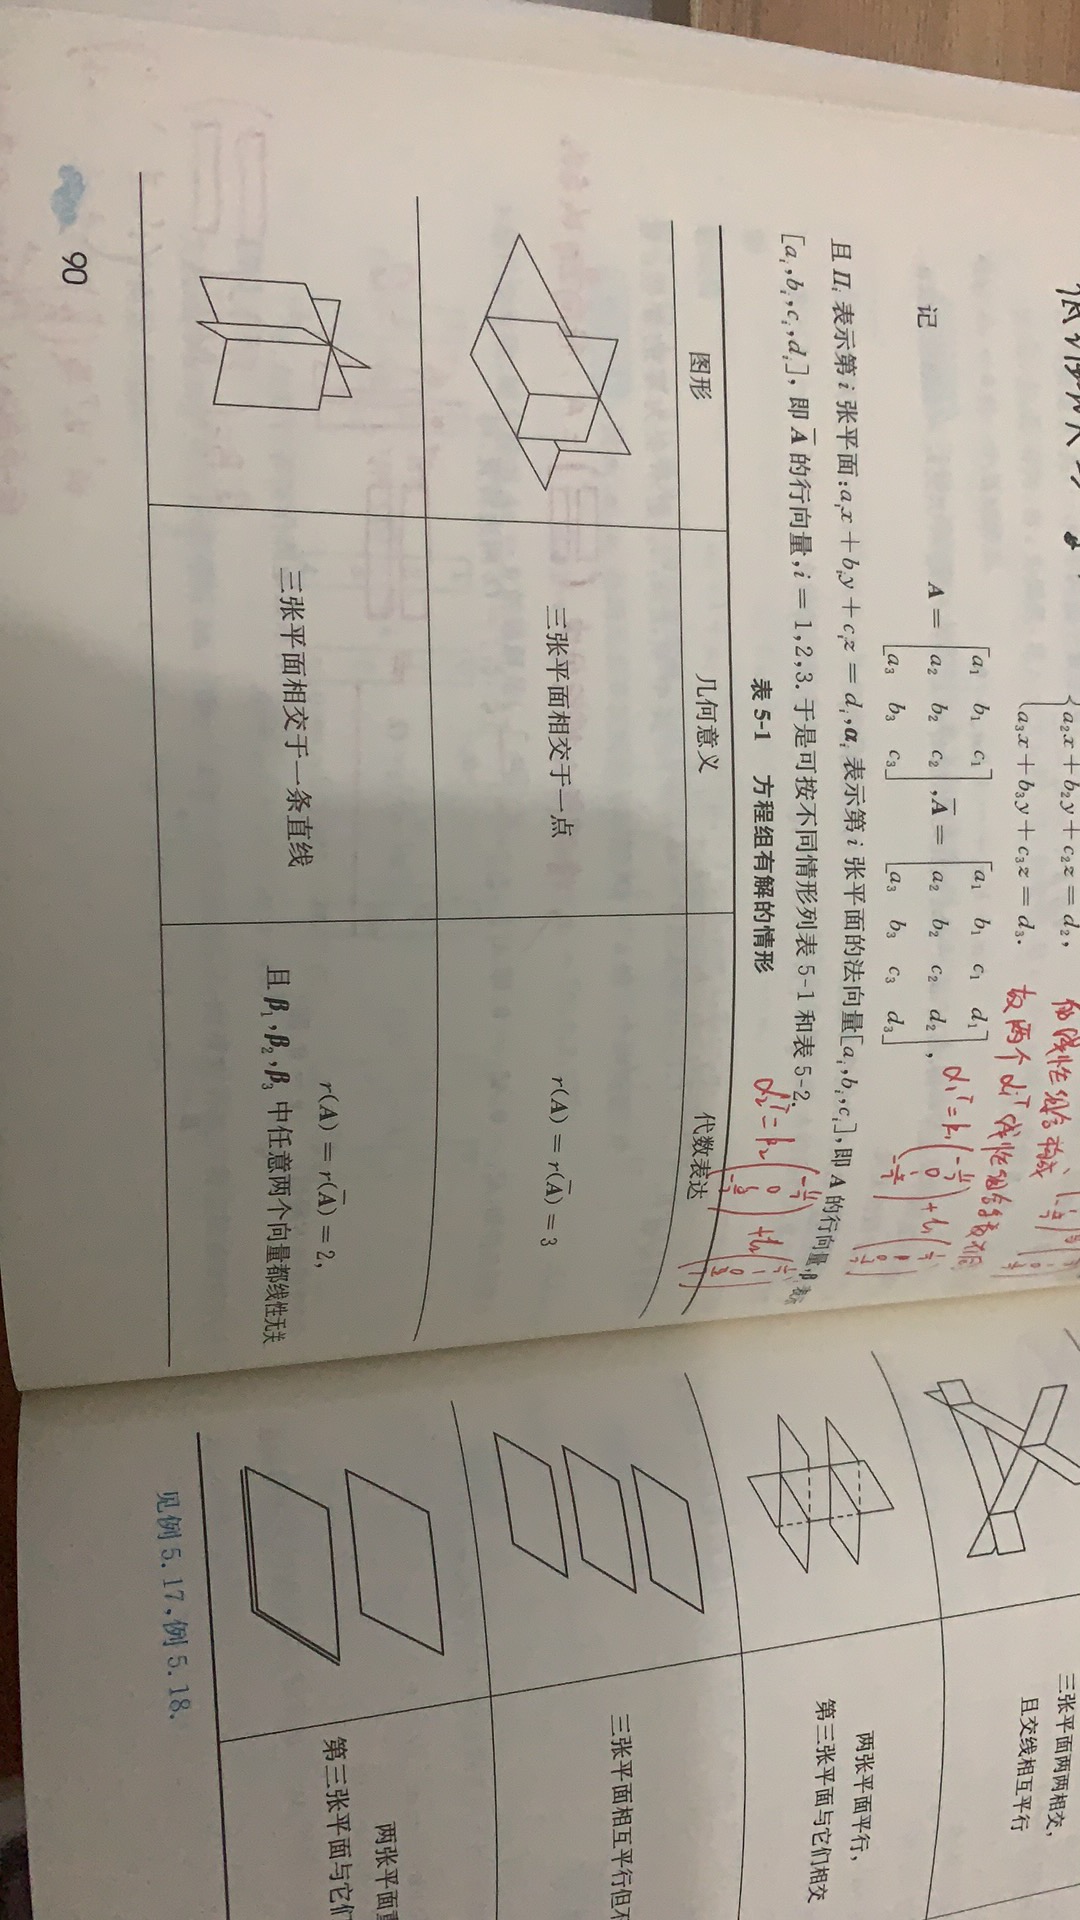 a₂x + b₂y + c₂z = d₂,
a₃x + b₃y + c₃z = d₃.
记
A = [a₁ b₁ c₁; a₂ b₂ c₂; a₃ b₃ c₃], A̅ = [a₁ b₁ c₁ d₁; a₂ b₂ c₂ d₂; a₃ b₃ c₃ d₃],
且 Πᵢ 表示第 i 张平面:aᵢx + bᵢy + cᵢz = dᵢ,αᵢ 表示第 i 张平面的法向量[aᵢ,bᵢ,cᵢ],即 A 的行向量,β
[aᵢ,bᵢ,cᵢ,dᵢ],即 A̅ 的行向量,i = 1,2,3. 于是可按不同情形列表 5-1 和表 5-2.
表 5-1 方程组有解的情形
图形 几何意义 代数表达
三张平面相交于一点 r(A) = r(A̅) = 3
三张平面相交于一条直线 r(A) = r(A̅) = 2,
且 β₁,β₂,β₃ 中任意两个向量都线性无关
90
三张平面两两相交,
且交线相互平行
两张平面平行,
第三张平面与它们相交
三张平面相互平行但不
两张平面重
第三张平面与它们
见例 5.17,例 5.18.